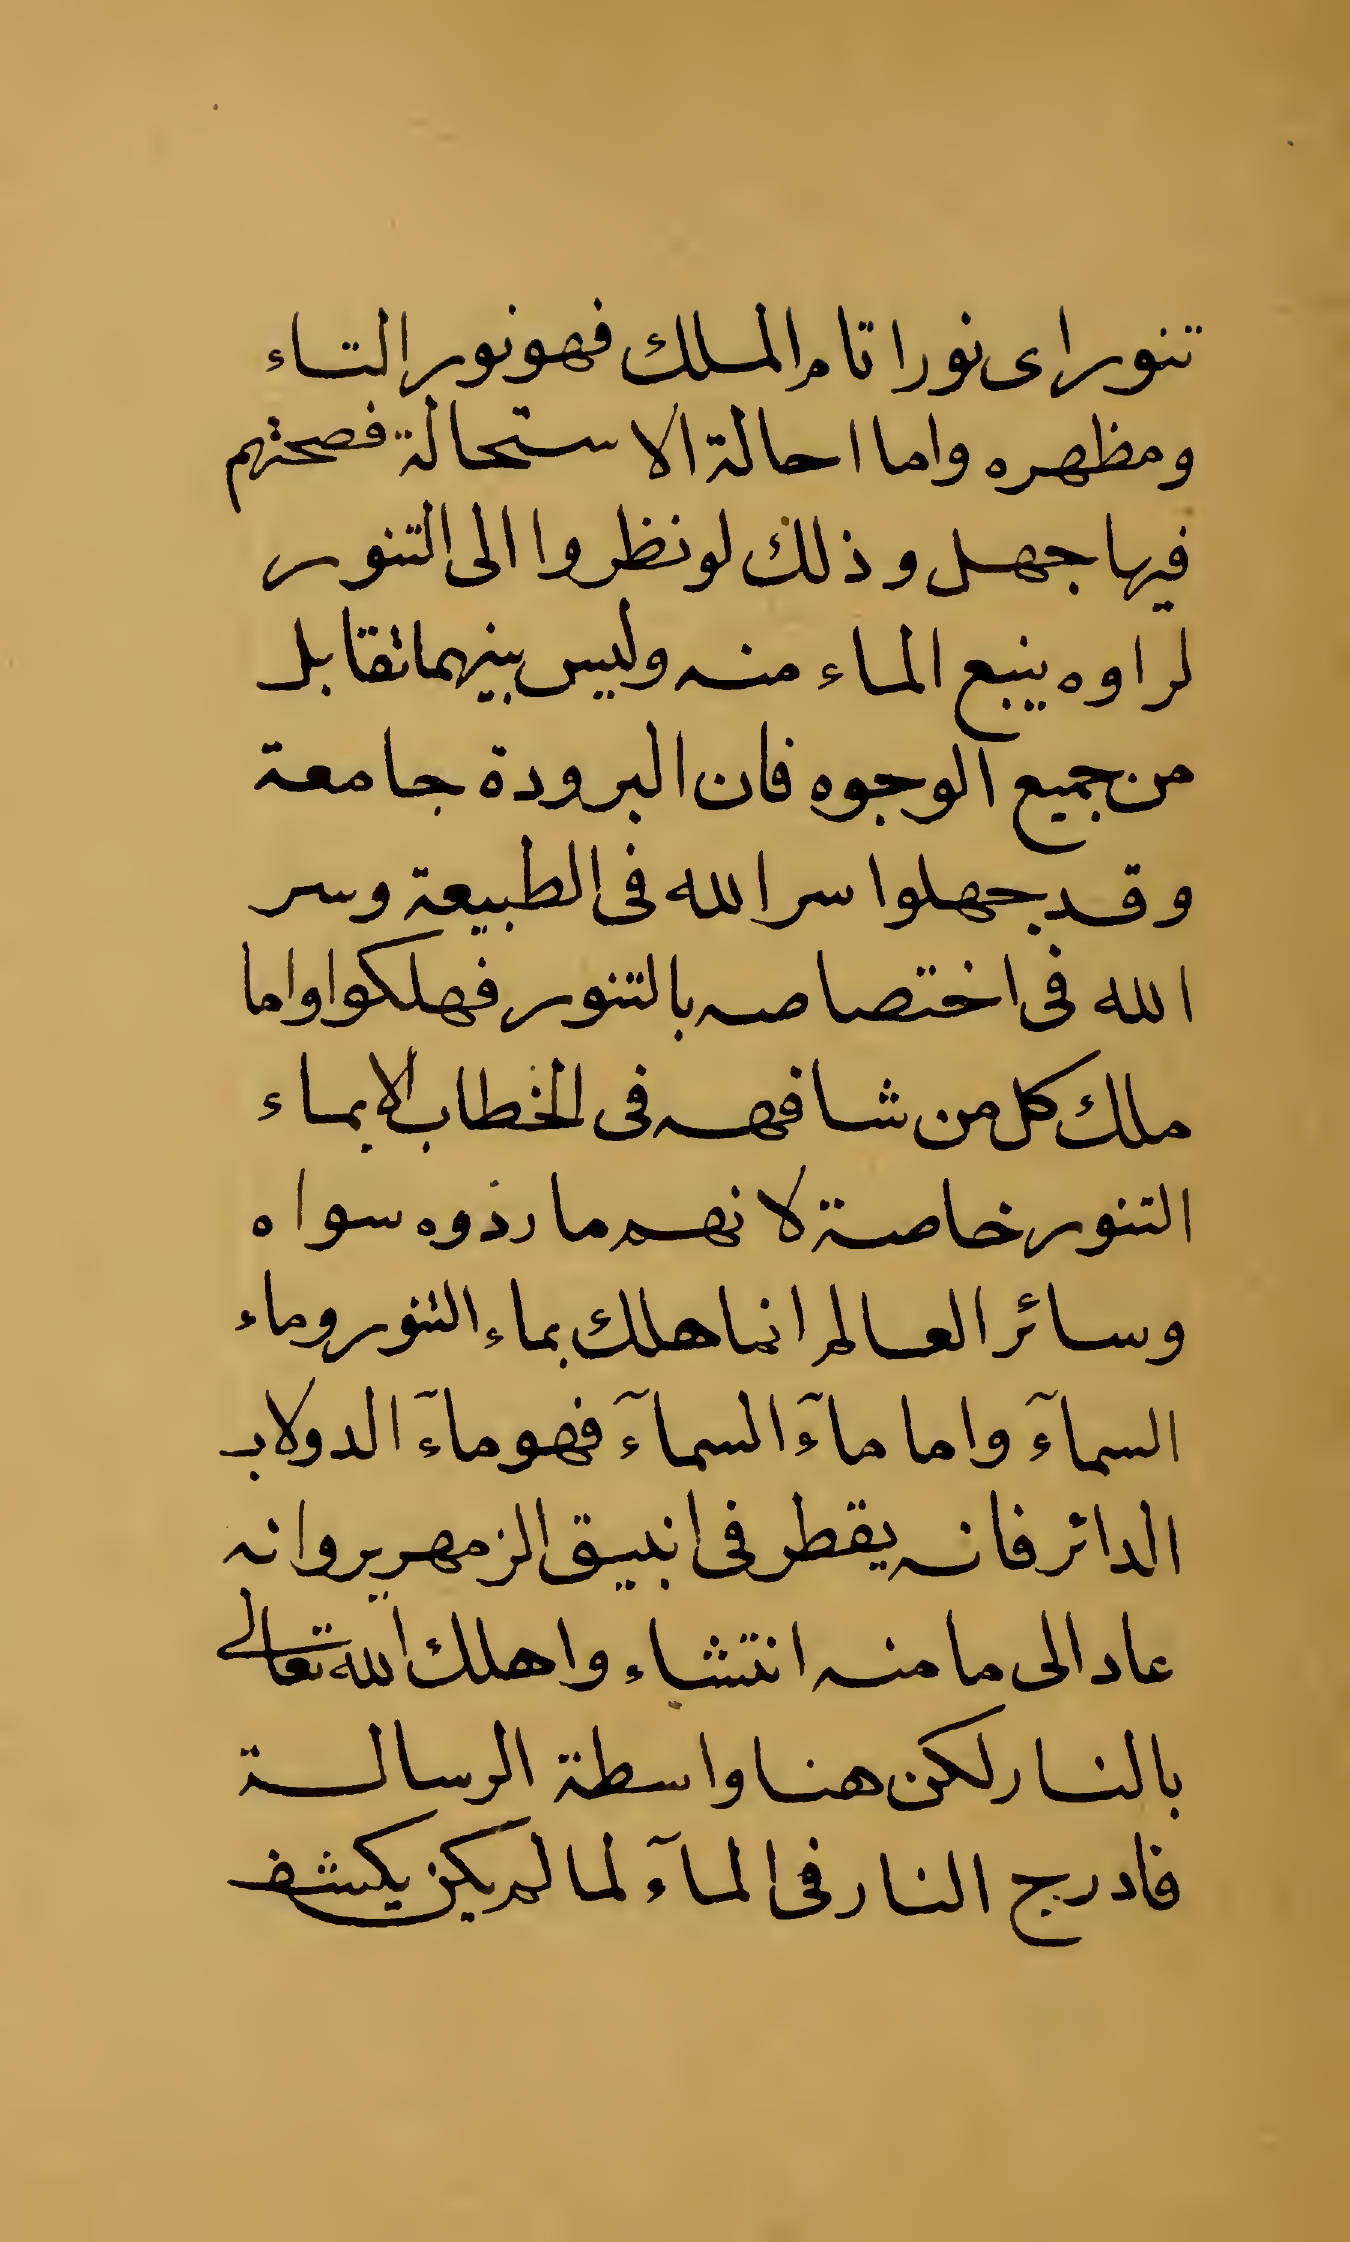 تنوراى نورا تام الملك فهو نور التاء
ومظهره واما احالة الاستحالة فصحتهم
فيها جهل وذلك لو نظروا الى التنور
لراوه ينبع الماء منه وليس بينهما تقابل
من جميع الوجوه فان البرودة جامعة
وقد جهلوا سر الله فى الطبيعة وسر
الله فى اختصاصه بالتنور فهلكوا واما
ملك كل من شافهه فى الخطاب الا بماء
التنور خاصة لانهم ما رذوه سواه
وسائر العالم انما هلك بماء التنور وماء
السمآء واما مآء السمآء فهو مآء الدولاب
الدائر فانه يقطر فى انبيق الزمهرير وانه
عاد الى ما منه انتشاء واهلك الله تعالى
بالنار لكن هنا واسطة الرسالة
فادرج النار فى المآء لما لم يكن يكشف